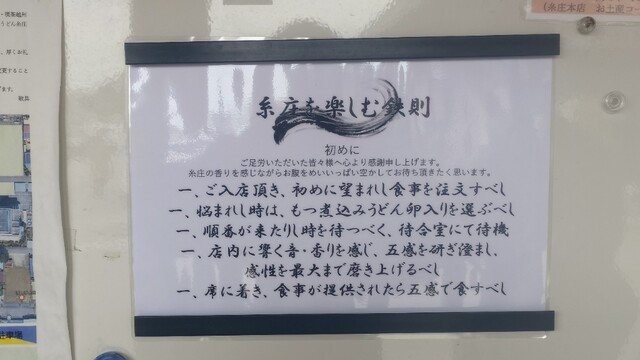 糸庄を楽しむ鉄則
初めに
ご足労いただいた皆々様へ心より感謝申し上げます。
糸庄の香りを感じながらお腹をめいいっぱい空かしてお待ち頂きたく思います。
一、ご入店頂き、初めに望まれし食事を注文すべし
一、悩まれし時は、もつ煮込みうどん卵入りを選ぶべし
一、順番が来たりし時を待つべく、待合室にて待機
一、店内に響く音・香りを感じ、五感を研ぎ澄まし、
感性を最大まで磨き上げるべし
一、席に着き、食事が提供されたら五感で食すべし
(糸庄本店 お土産コー
・喫茶糸庄
うどん糸庄
、厚くお礼
変更すること
ます。
敬具
駐車場